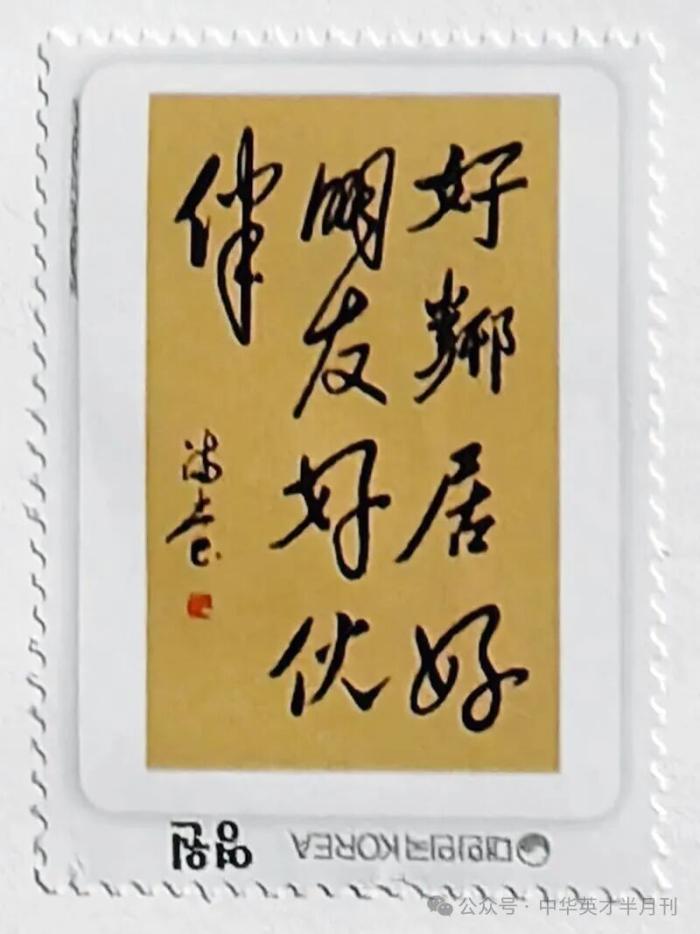 好鄰居好
朋友好伙
伴
대한민국 KOREA
영원
公众号 · 中华英才半月刊